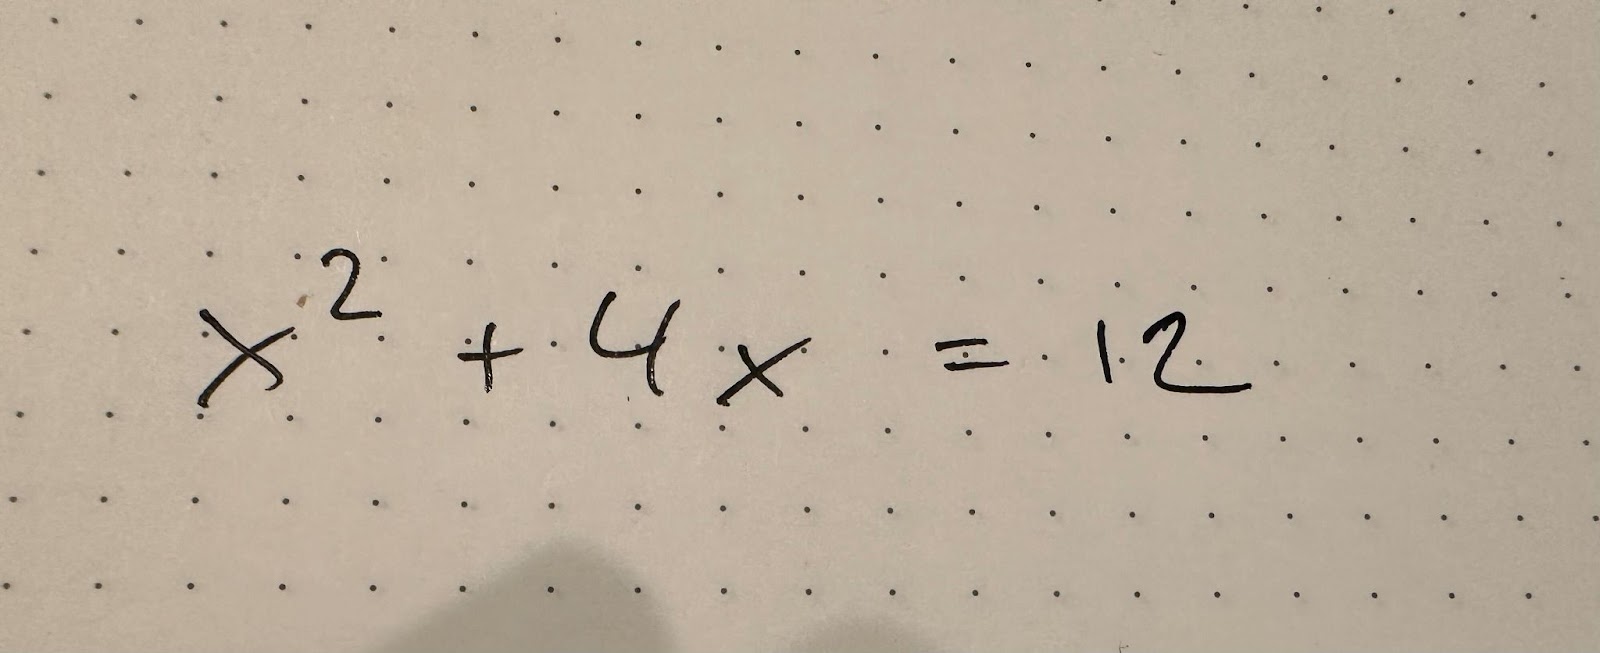 x² + 4x = 12